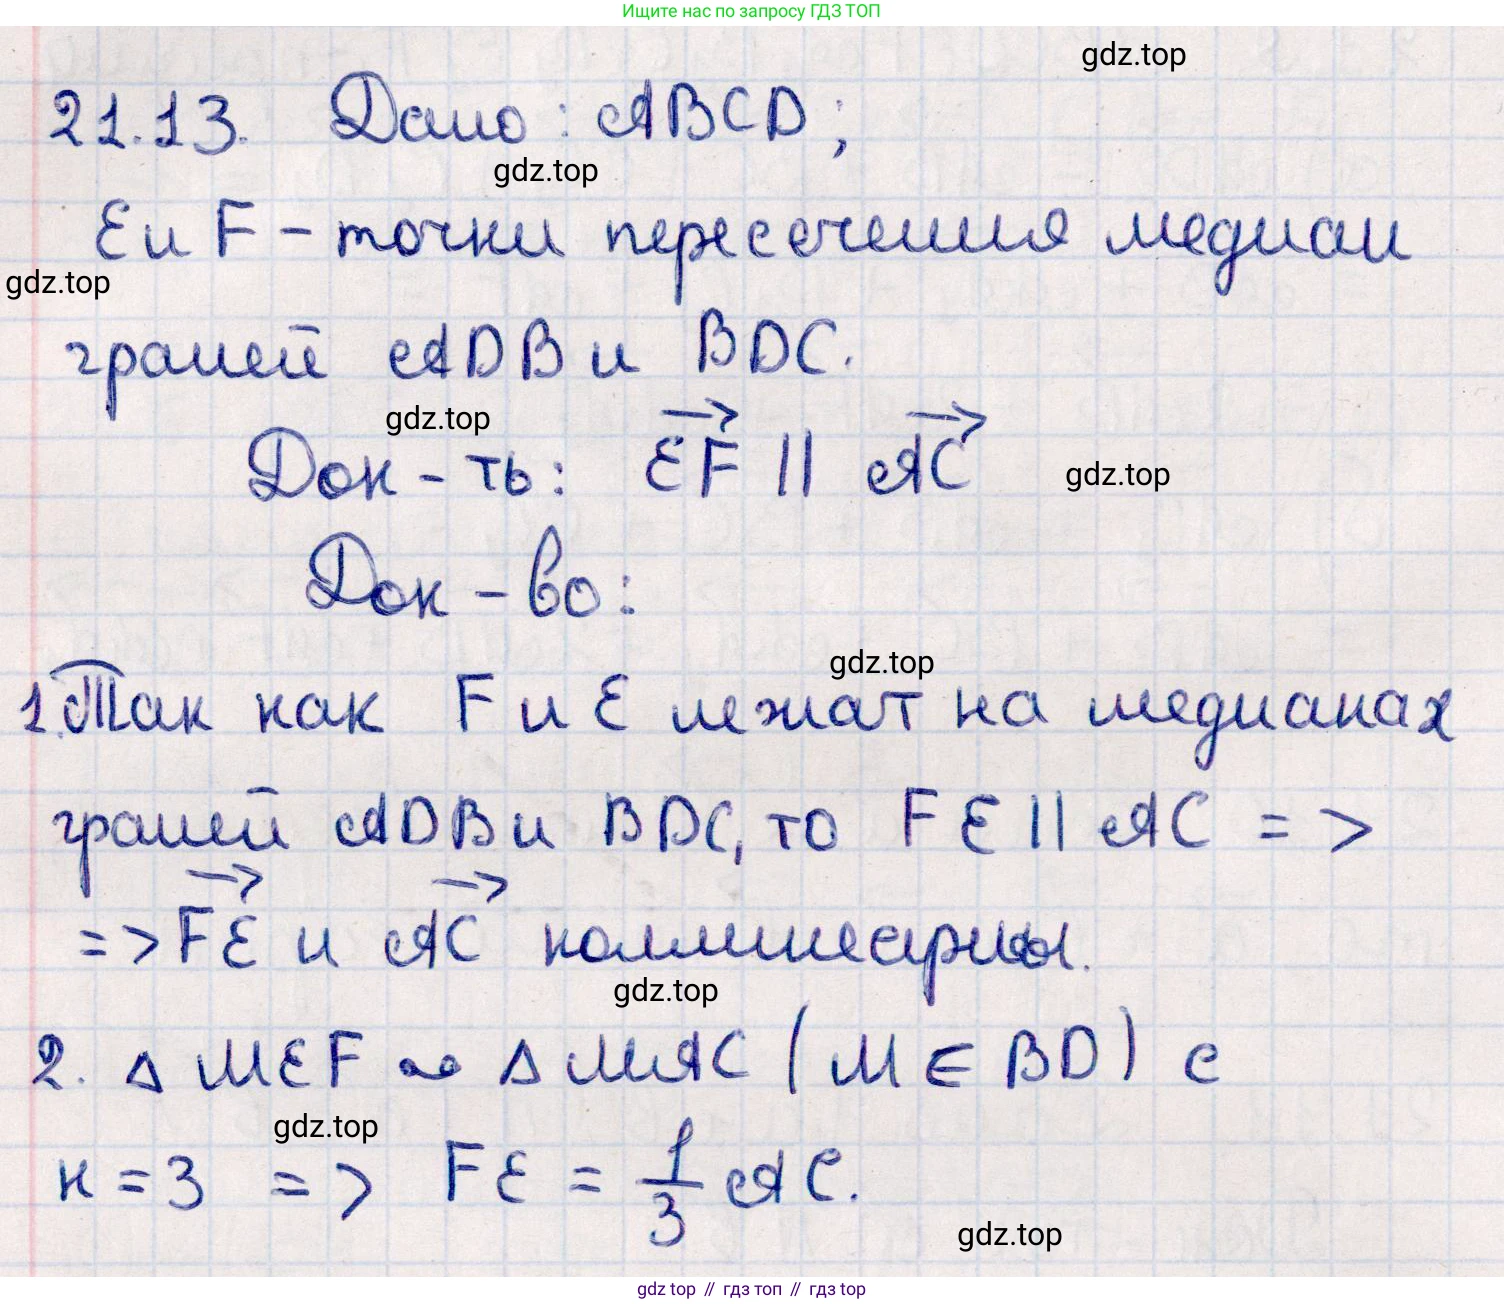 Ищите нас по запросу ГДЗ ТОП
gdz.top
21.13. Дано: ABCD;
gdz.top
E и F - точки пересечения медиан
gdz.top
граней ADB и BDC.
gdz.top
Док-ть: EF || AC
gdz.top
Док-во:
gdz.top
1. Так как F и E лежат на медианах
граней ADB и BDC, то FE || AC =>
=> FE и AC коллинеарны.
gdz.top
2. Δ MEF ~ Δ MAC (M ∈ BD) с
gdz.top
к = 3 => FE = 1/3 AC.
gdz.top
gdz top // гдз топ // гдз top